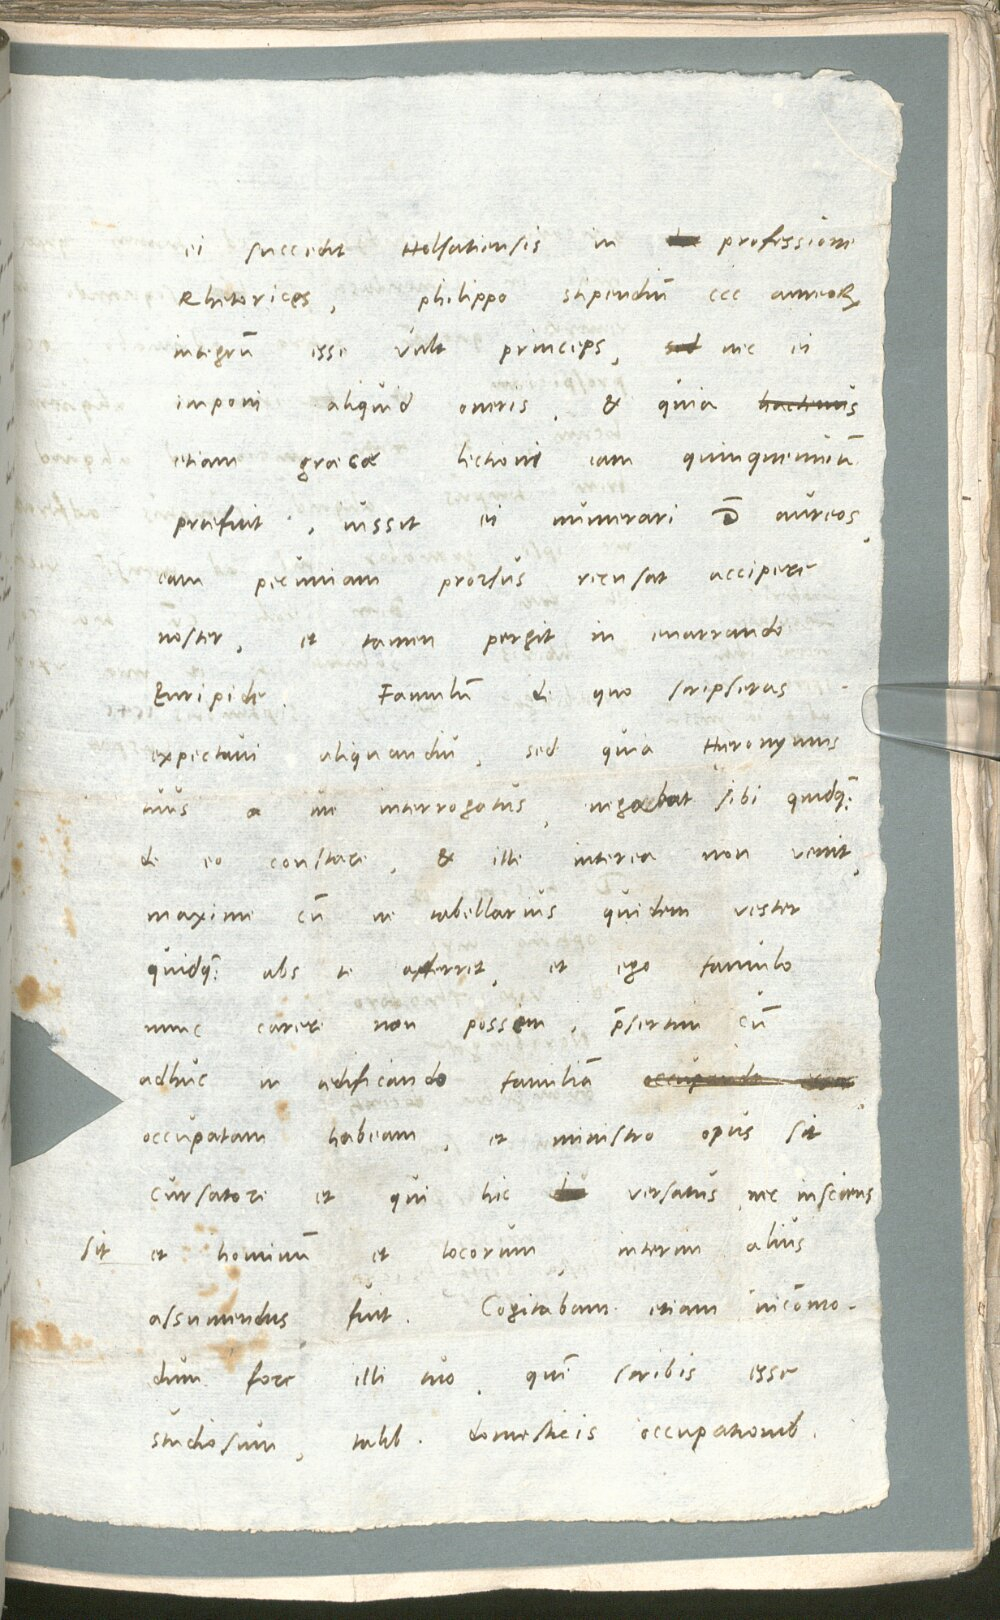 ei succedit Holsatiensis in professione
Rhetorices, philippo stipendiū ccc aureoꝝ
integrū esse vult princeps, sed nec ei
imponi aliquid oneris. & quia hactenus
etiam græcæ lectioni iam quinquenniū
præfuit, iussit ei numerari D̄ aureos,
eam pecuniam prorsus recusat accipere
noster, et tamen pergit in enarrando
Euripide. Famulū de quo scripseras
expectavi aliquandiu, sed quia Hieronymus
tuus a me interrogatus, negabat sibi quidq̃
de eo constare, & ille interea non venit,
maxime cū ne tabellarius quidem vester
quidq̃ abs te afferret, et ego famulo
nunc carere non possem, p̄sertim cū
adhuc in ædificando familiā occupanda
occupatam habeam, et ministro opus sit
cursatore et qui hic versatus nec insciens
sit et hominū et locorum, interim alius
assumendus fuit. Cogitabam etiam incōmo-
dum fore illi tuo, quē scribis esse
studiosum, talib. domesticis occupationib.